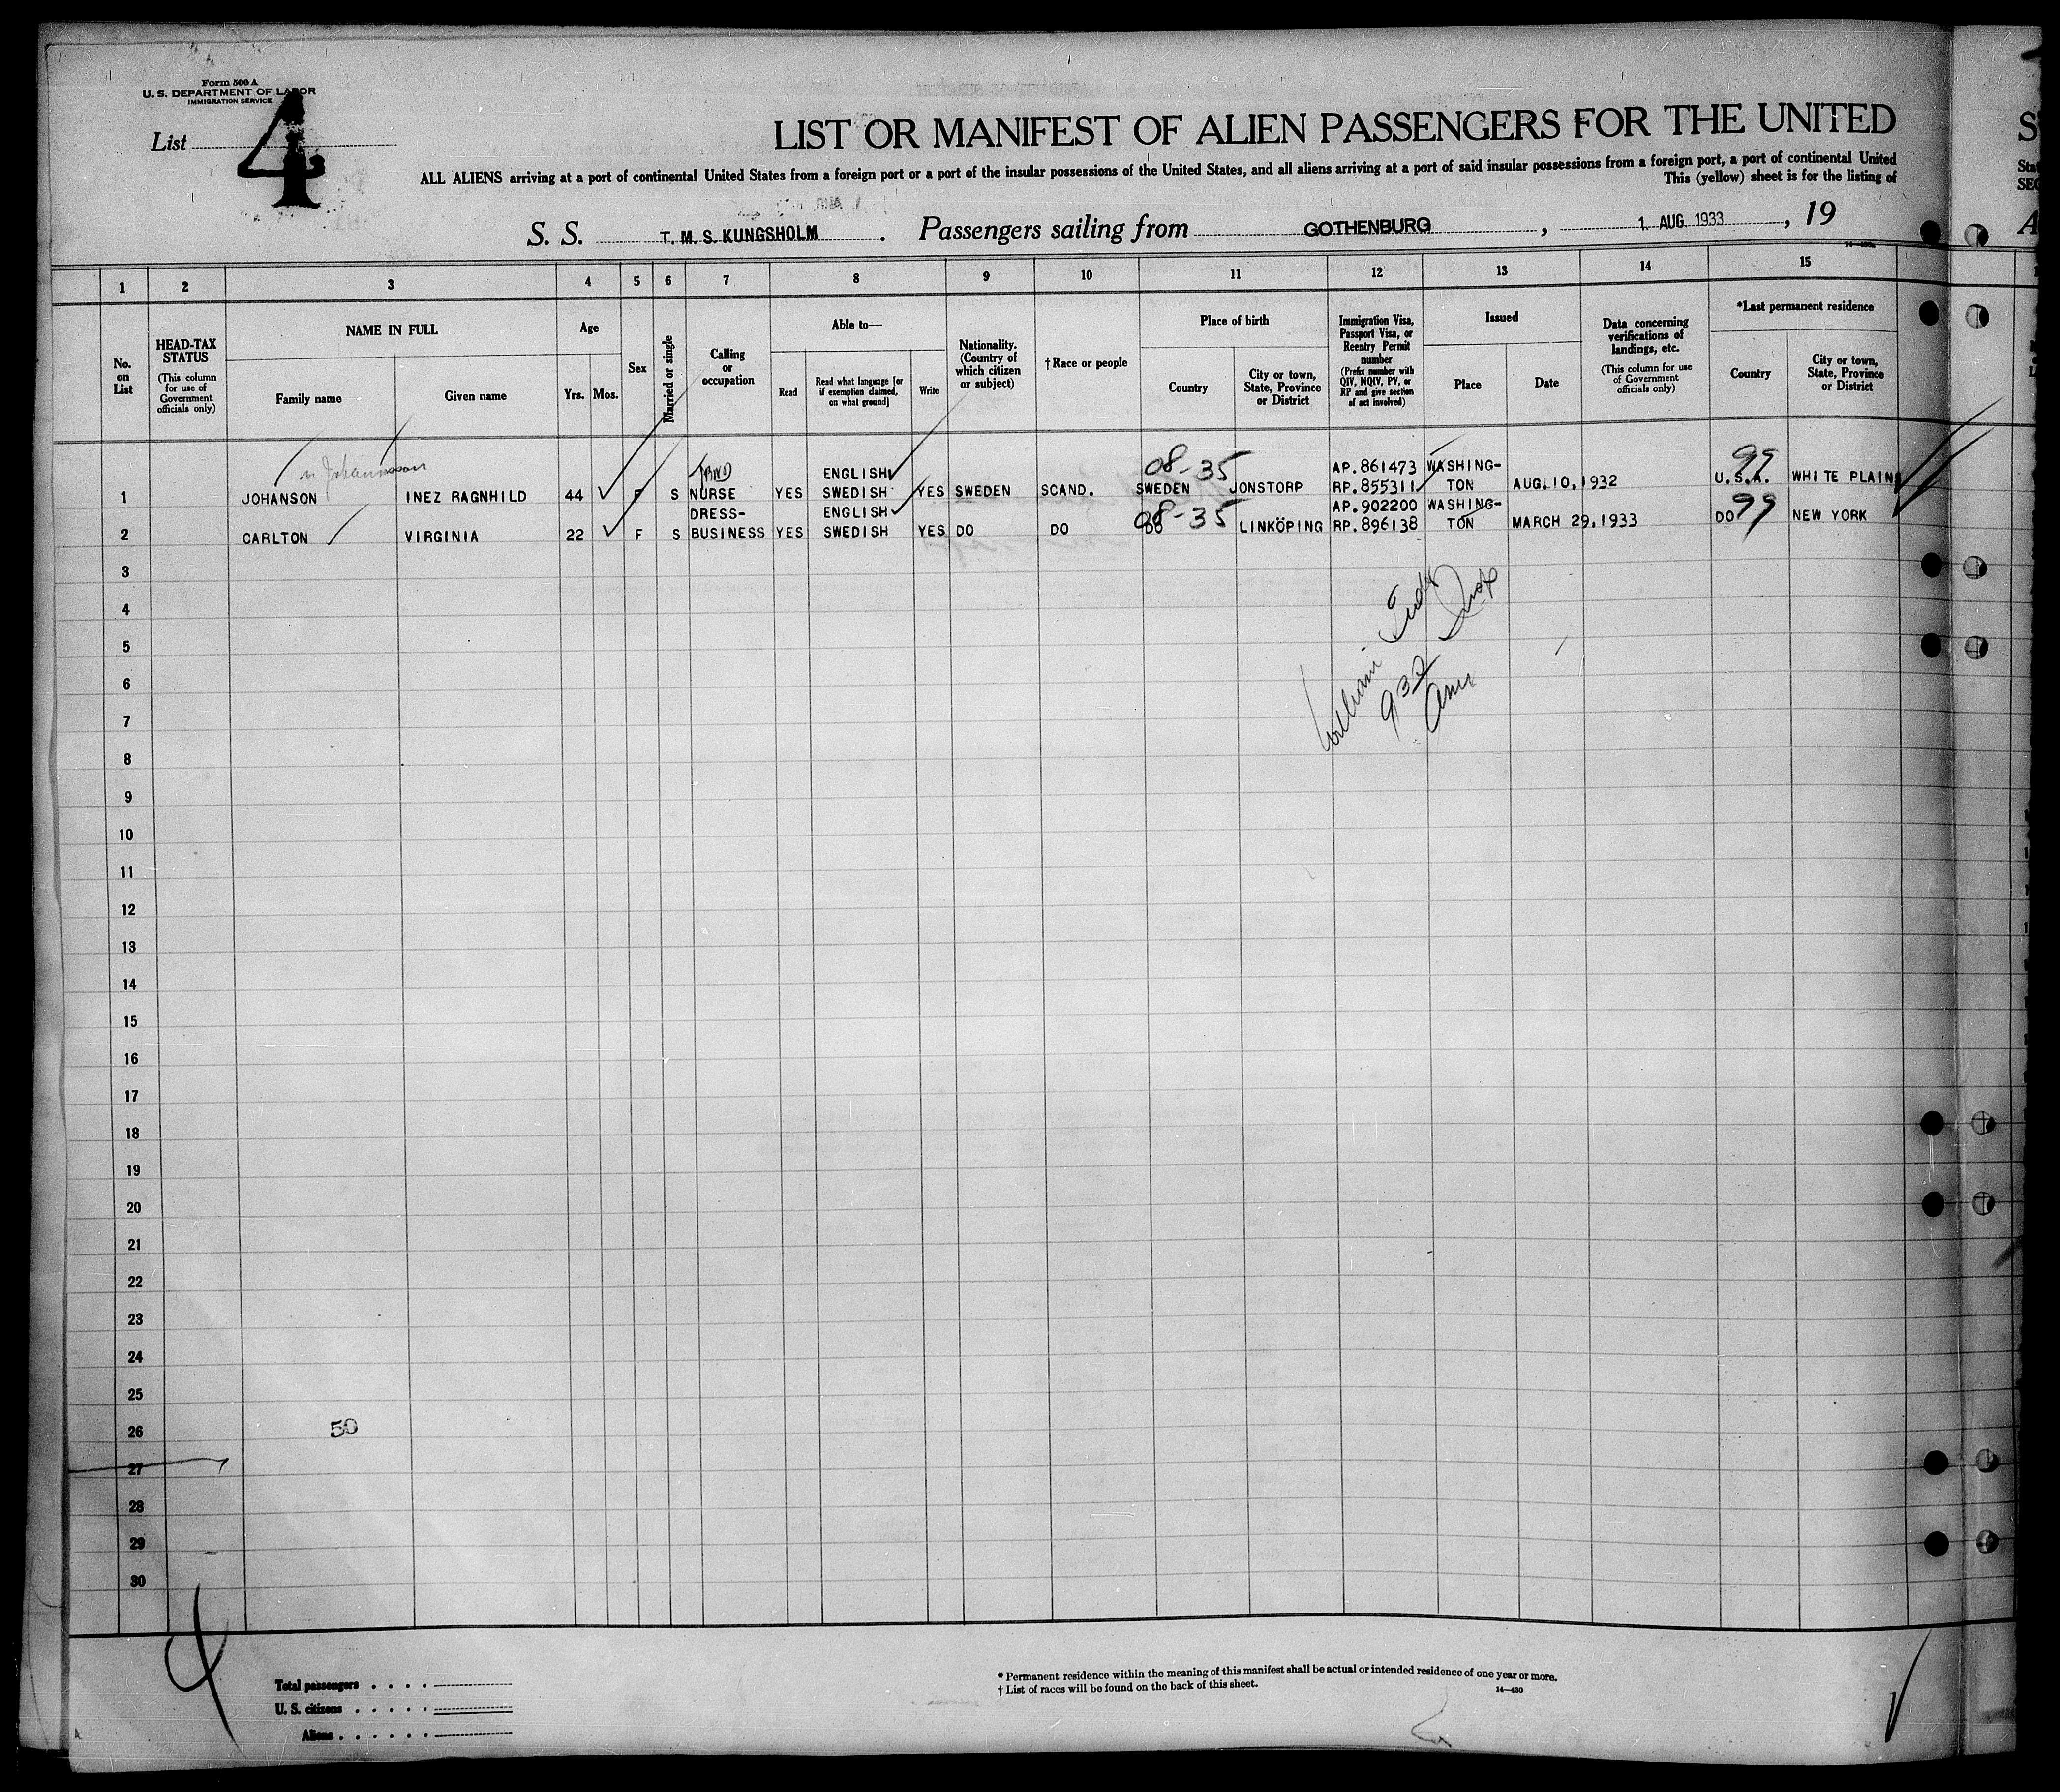 Form 500 A
U. S. DEPARTMENT OF LABOR
IMMIGRATION SERVICE
List 4
LIST OR MANIFEST OF ALIEN PASSENGERS FOR THE UNITED
ALL ALIENS arriving at a port of continental United States from a foreign port or a port of the insular possessions of the United States, and all aliens arriving at a port of said insular possessions from a foreign port, a port of continental United
This (yellow) sheet is for the listing of
S. S. T. M. S. KUNGSHOLM . Passengers sailing from GOTHENBURG , 1. AUG. 1933 , 19
1 2 3 4 5 6 7 8 9 10 11 12 13 14 15
No. on List
HEAD-TAX STATUS
(This column for use of Government officials only)
NAME IN FULL
Family name
Given name
Age
Yrs.
Mos.
Sex
Married or single
Calling or occupation
Able to—
Read
Read what language [or if exemption claimed, on what ground]
Write
Nationality. (Country of which citizen or subject)
† Race or people
Place of birth
Country
City or town, State, Province or District
Immigration Visa, Passport Visa, or Reentry Permit number
(Prefix number with QIV, NQIV, PV, or RP and give section of act involved)
Issued
Place
Date
Data concerning verifications of landings, etc.
(This column for use of Government officials only)
*Last permanent residence
Country
City or town, State, Province or District
ENGLISH 08-35 AP.861473 WASHING- 99
1 JOHANSON INEZ RAGNHILD 44 F S NURSE YES SWEDISH YES SWEDEN SCAND. SWEDEN JONSTORP RP.855311 TON AUG.10,1932 U.S.A. WHITE PLAINS
DRESS- ENGLISH 08-35 AP.902200 WASHING- 99
2 CARLTON VIRGINIA 22 F S BUSINESS YES SWEDISH YES DO DO DO LINKÖPING RP.896138 TON MARCH 29,1933 DO NEW YORK
3
4
5
6
7
8
9
10
11
12
13
14
15
16
17
18
19
20
21
22
23
24
25
26 50
27
28
29
30
William
932
4
Total passengers
U. S. citizens
Aliens
* Permanent residence within the meaning of this manifest shall be actual or intended residence of one year or more.
† List of races will be found on the back of this sheet.
14—430